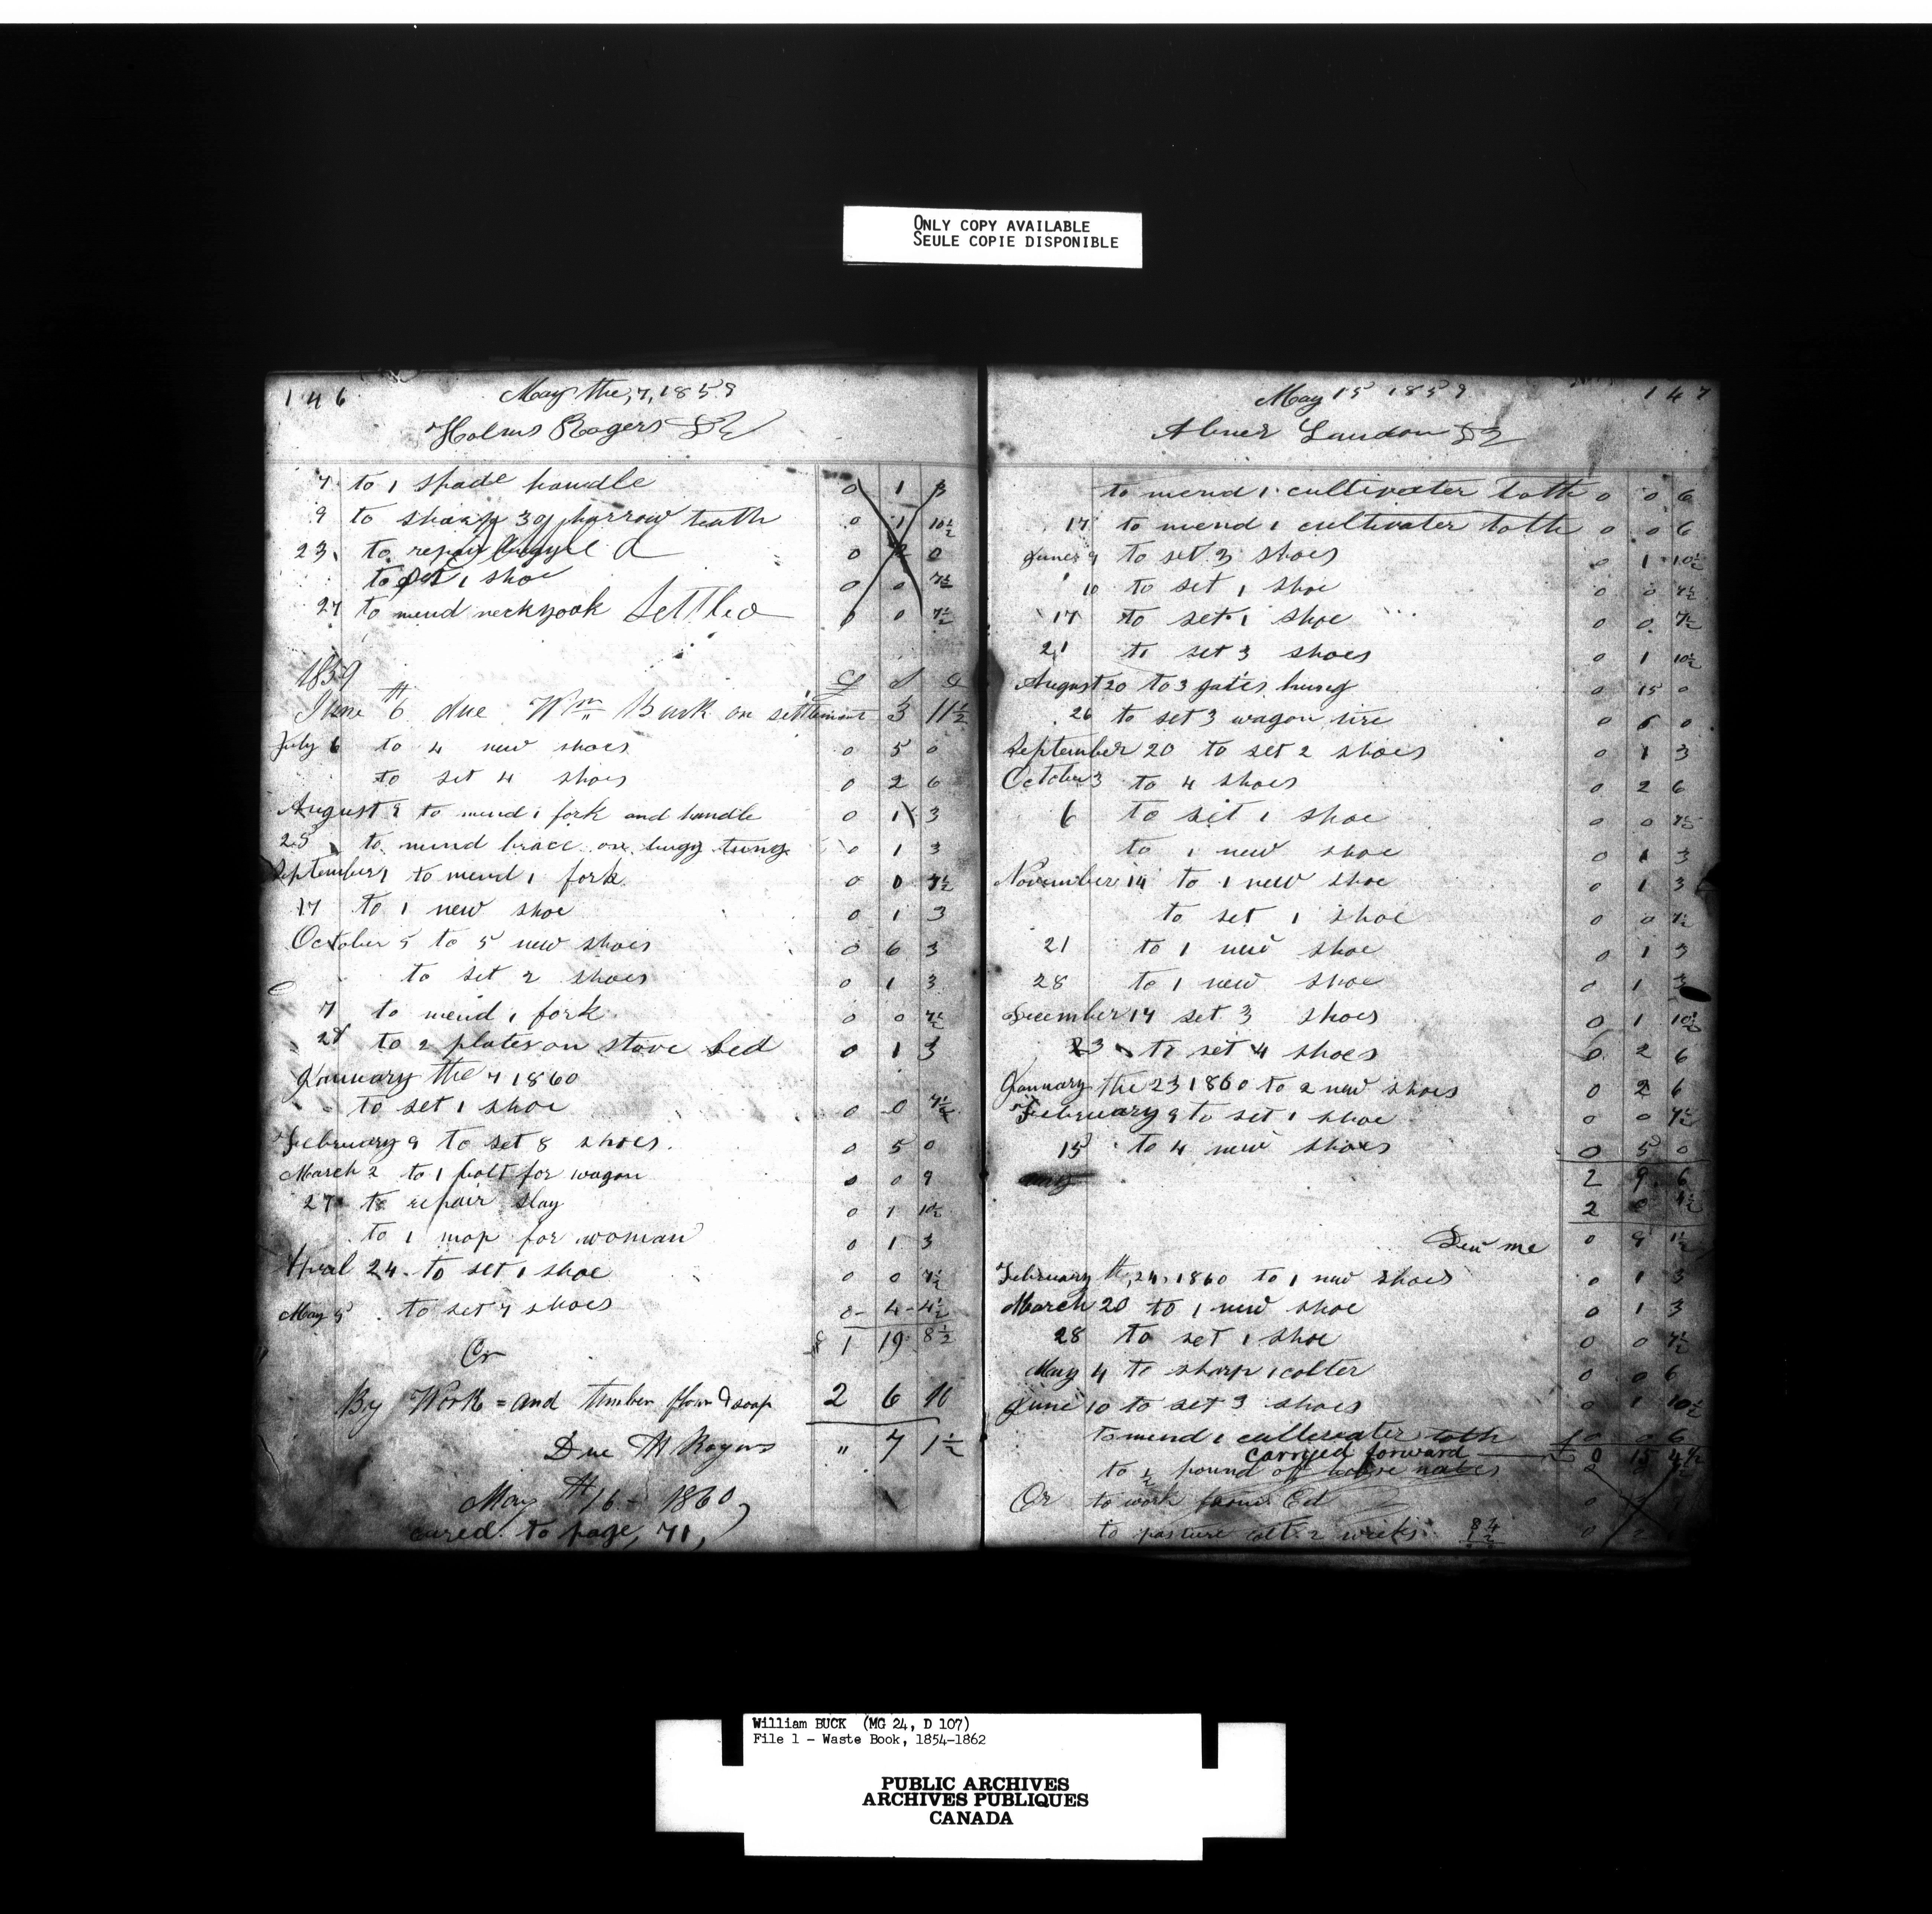 ONLY COPY AVAILABLE
SEULE COPIE DISPONIBLE
146 May the, 7, 1859
Holms Rogers Dr
7 to 1 spade handle 0 1 3
9 to sharp 30 harrow teath 0 1 10½
23 to repair 0 2 0
to set 1 shoe 0 0 7½
27 to mend neckyook Settled 0 0 7½
1859 £ s d
June 6th due Wm Buck on settlement 3 11½
July 6 to 4 new shoes 0 5 0
to set 4 shoes 0 2 6
August 9 to mend 1 fork and handle 0 1 3
25 to mend brace on bugy tung 0 1 3
September 1 to mend 1 fork 0 0 7½
17 to 1 new shoe 0 1 3
October 5 to 5 new shoes 0 6 3
to set 2 shoes 0 1 3
7 to mend 1 fork 0 0 7½
28 to 2 plates on stove bed 0 1 3
January the 7 1860
to set 1 shoe 0 0 7½
February 9 to set 8 shoes 0 5 0
March 2 to 1 bolt for wagon 0 0 9
27 to repair slay 0 1 10½
to 1 mop for woman 0 1 3
April 24 to set 1 shoe 0 0 7½
May 5 to set 7 shoes 0 - 4 - 4½
£ 1 19 8½
Cr
By Work = and timber flour & soap 2 6 10
Due H Rogers " 7 1½
May th 16 - 1860
cared to page, 71,
May 15 1859 147
Abner Landon Dr
to mend 1 cultivater toth 0 0 6
17 to mend 1 cultivater toth 0 0 6
June 9 to set 3 shoes 0 1 10½
10 to set 1 shoe 0 0 7½
17 to set 1 shoe 0 0 7½
21 to set 3 shoes 0 1 10½
August 20 to 3 gates hung 0 15 0
26 to set 3 wagon tire 0 6 0
September 20 to set 2 shoes 0 1 3
October 3 to 4 shoes 0 2 6
6 to set 1 shoe 0 0 7½
to 1 new shoe 0 1 3
November 14 to 1 new shoe 0 1 3
to set 1 shoe 0 0 7½
21 to 1 new shoe 0 1 3
28 to 1 new shoe 0 1 3
December 14 set 3 shoes 0 1 10½
23 to set 4 shoes 0 2 6
January the 23 1860 to 2 new shoes 0 2 6
February 9 to set 1 shoe 0 0 7½
15 to 4 new shoes 0 5 0
2 9 6
2 0 4½
Deu me 0 9 1½
February th, 24, 1860 to 1 new shoes 0 1 3
March 20 to 1 new shoe 0 1 3
28 to set 1 shoe 0 0 7½
May 4 to sharp 1 colter 0 0 6
June 10 to set 3 shoes 0 1 10½
to mend 1 cultervater toth 0 0 6
carryed forward £ 0 15 4½
to ½ pound of
Cr to work Ed
to pasture colt 2 weeks 0 2
William BUCK (MG 24, D 107)
File 1 - Waste Book, 1854-1862
PUBLIC ARCHIVES
ARCHIVES PUBLIQUES
CANADA